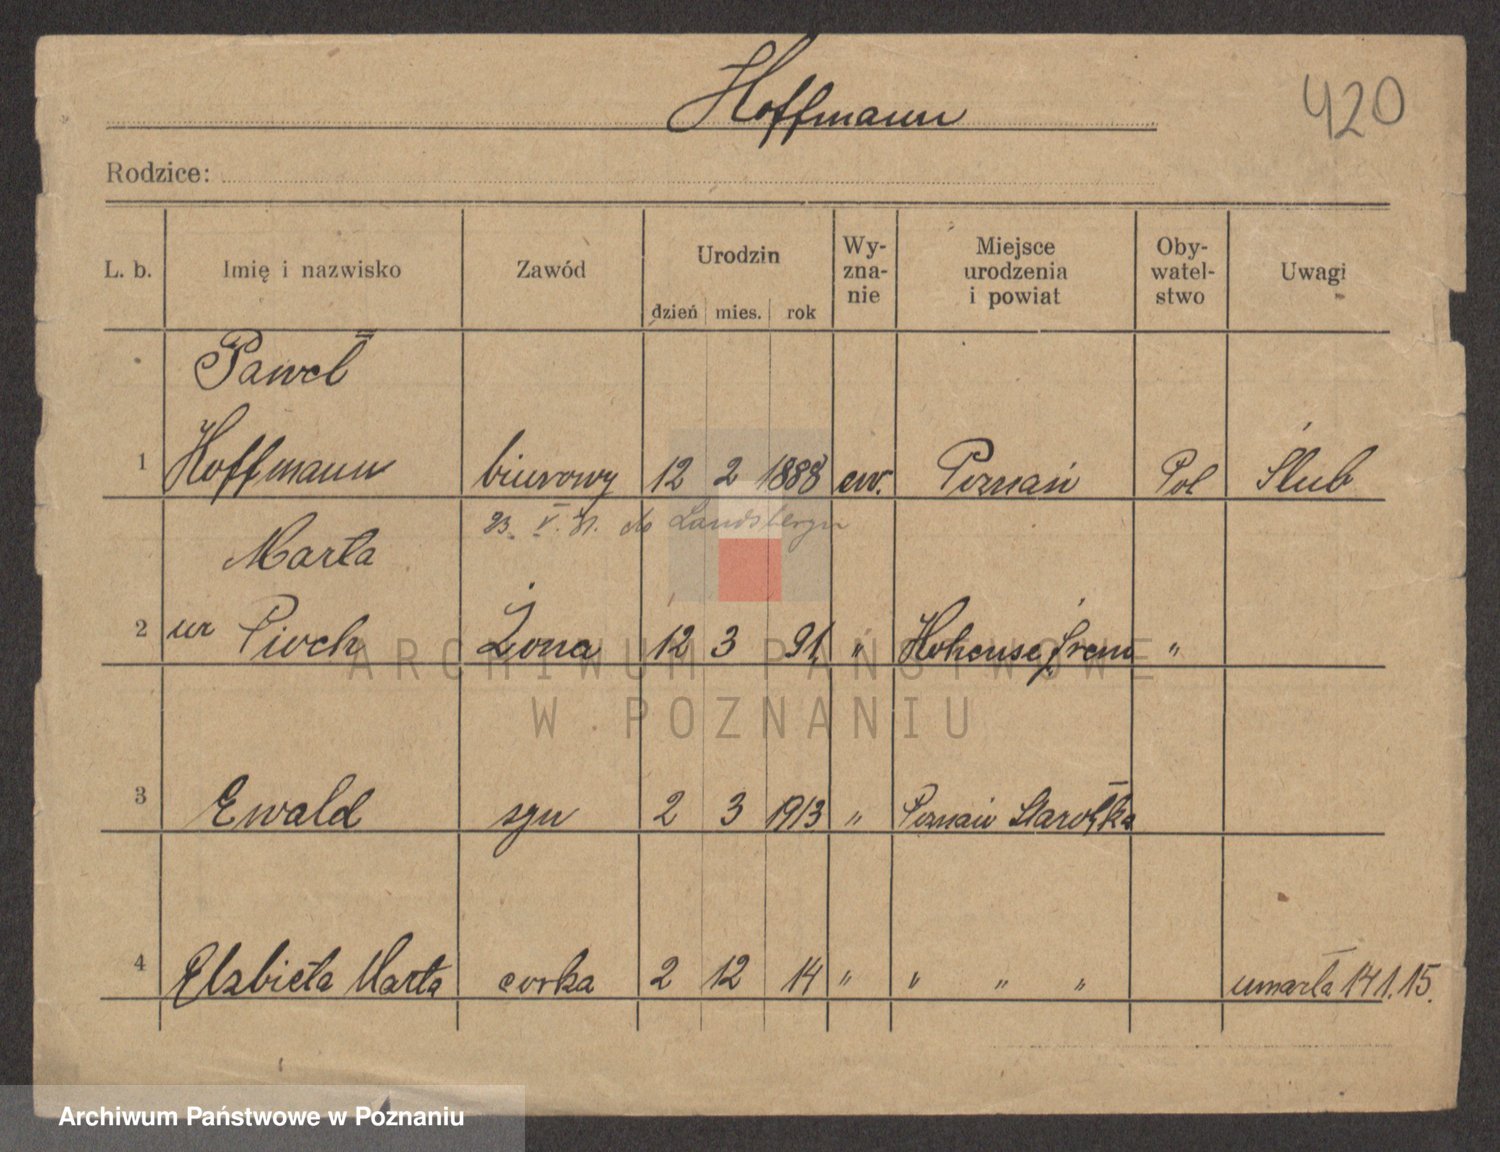 Hoffmann
420
Rodzice:
L. b. Imię i nazwisko Zawód Urodzin dzień mies. rok Wy-zna-nie Miejsce urodzenia i powiat Oby-watel-stwo Uwagi
Paweł
1 Hoffmann biurowy 12 2 1888 ew. Poznań Pol Ślub
23. V. 21. do Landsbergu
Marta
2 ur Pioch Żona 12 3 91, " Hohensee Śrem "
ARCHIWUM PAŃSTWOWE
W POZNANIU
3 Ewald syn 2 3 1913 " Poznań Starołęka
4 Elzbieta Marta corka 2 12 14 " " " " umarła 14 1. 15.
Archiwum Państwowe w Poznaniu